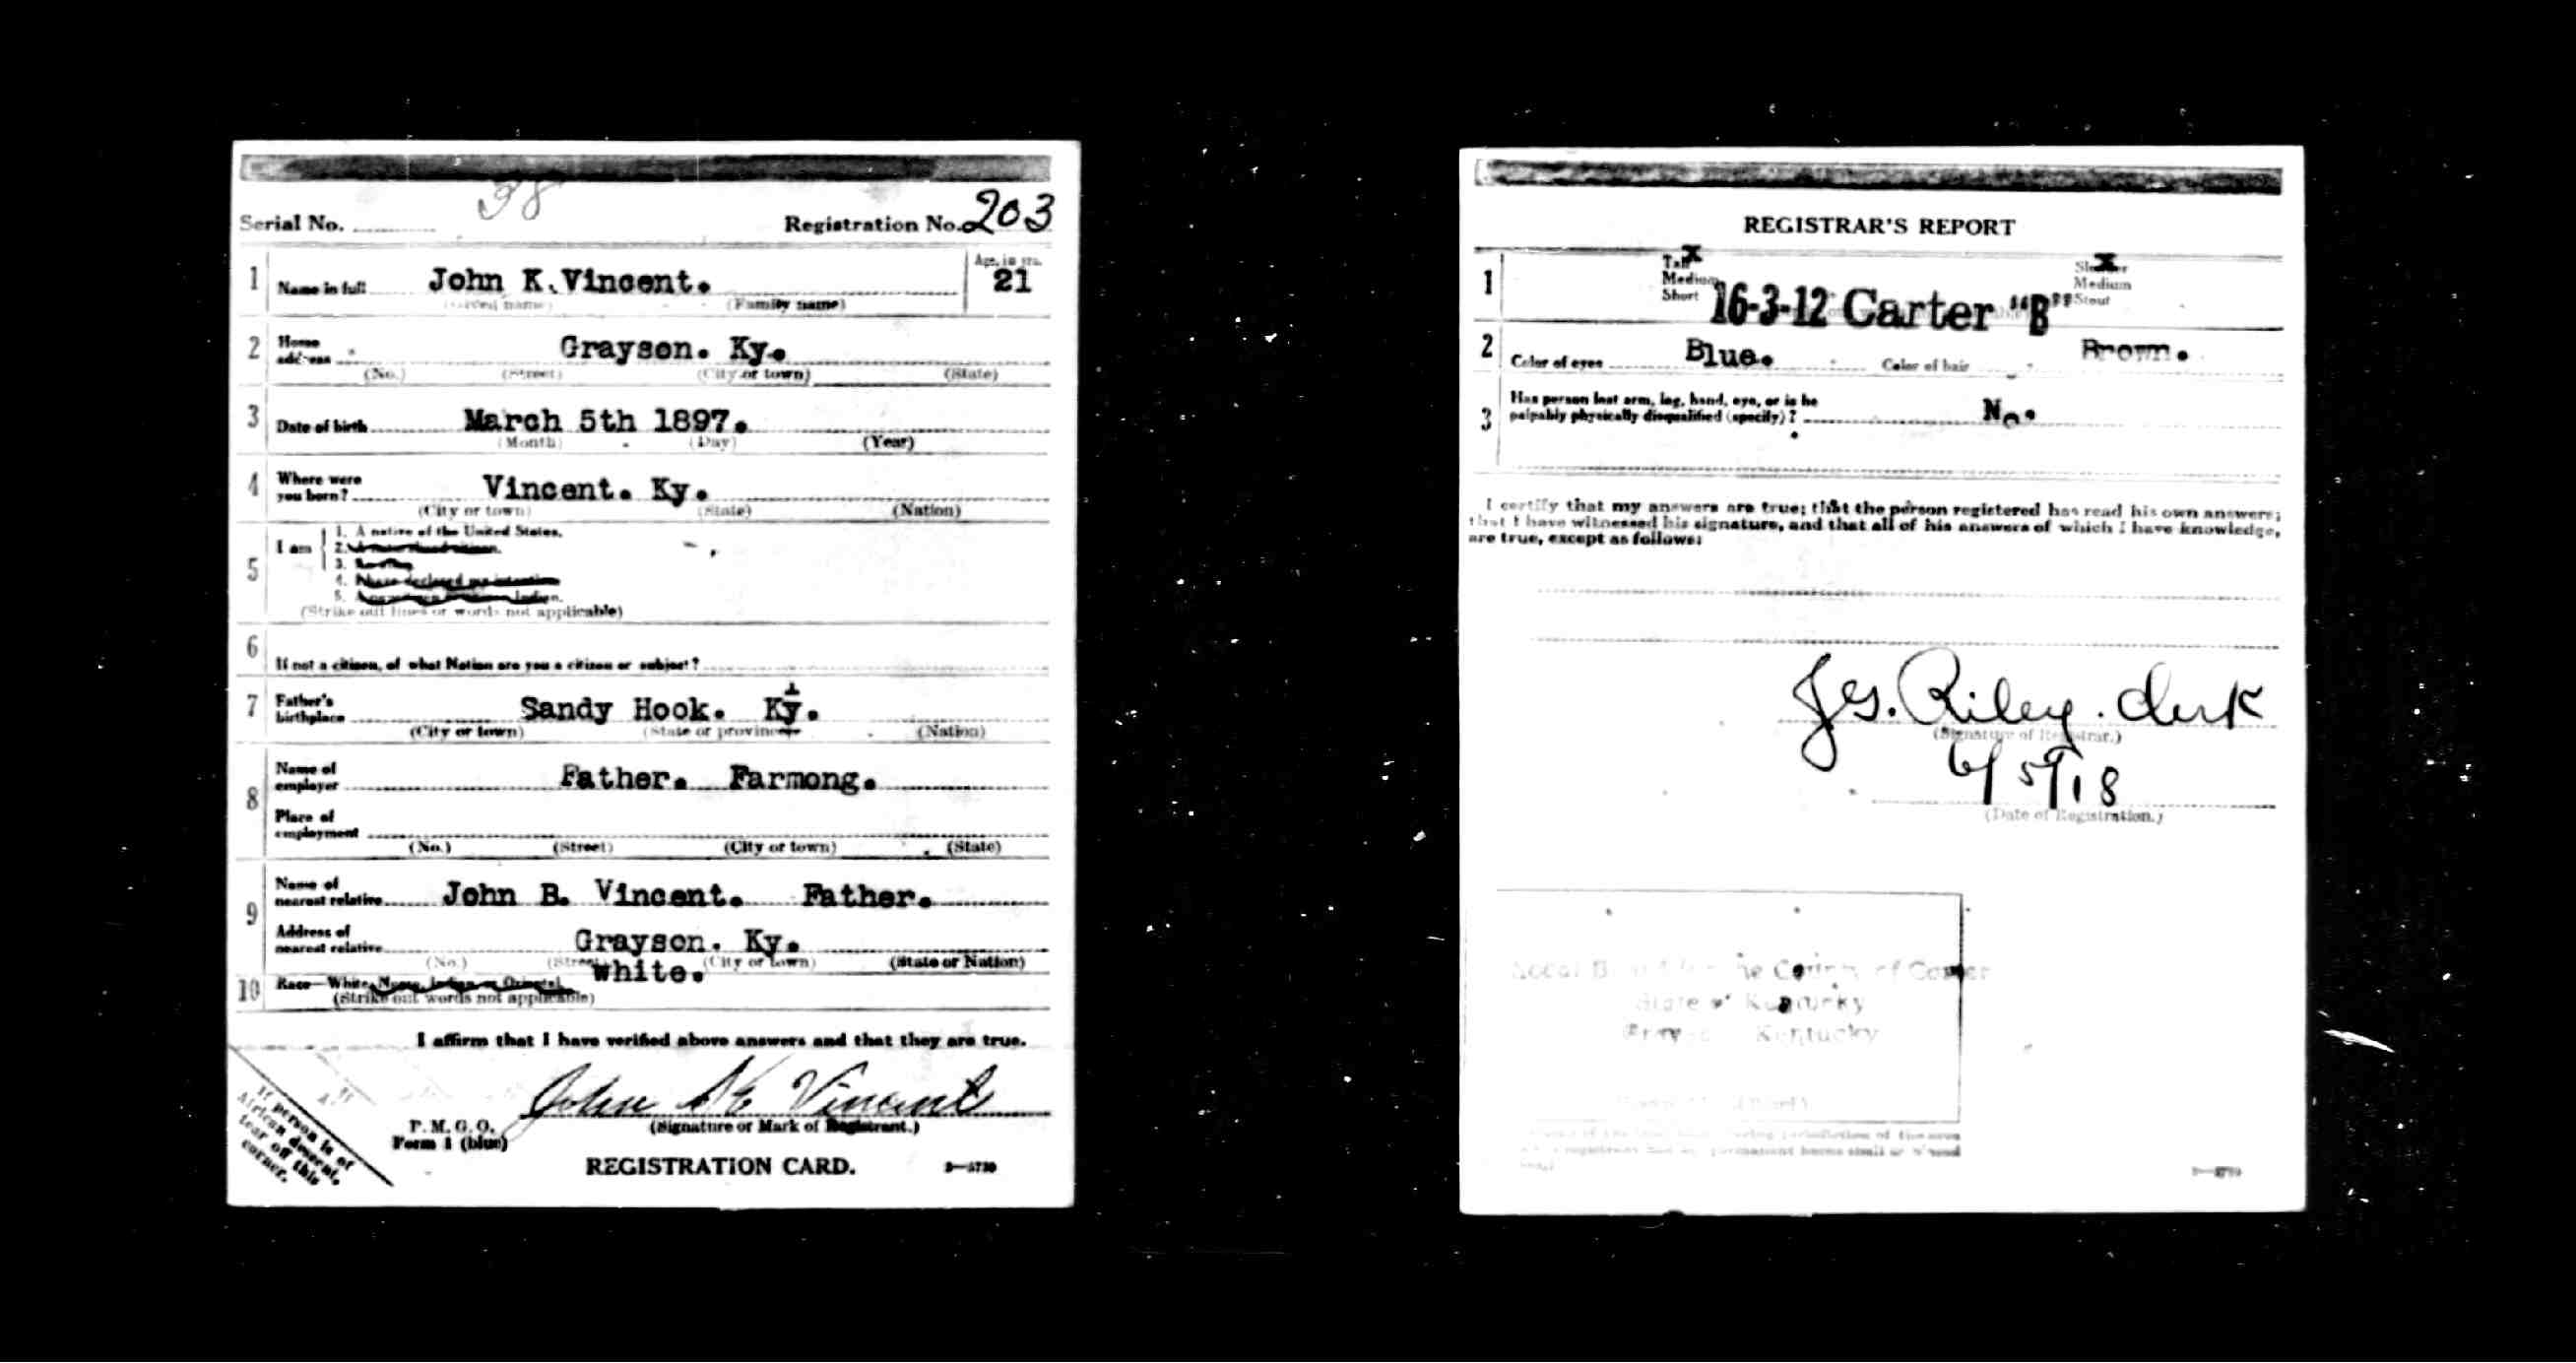 38
Serial No. Registration No. 203
1 Name in full John K. Vincent. Age, in yrs. 21
(Given name) (Family name)
2 Home address Grayson. Ky.
(No.) (Street) (City or town) (State)
3 Date of birth March 5th 1897.
(Month) (Day) (Year)
4 Where were you born? Vincent. Ky.
(City or town) (State) (Nation)
5 I am
1. A native of the United States.
2.
3.
4. I have declared my intention
5. Indian.
(Strike out lines or words not applicable)
6 If not a citizen, of what Nation are you a citizen or subject?
7 Father's birthplace Sandy Hook. Ky.
(City or town) (State or province) (Nation)
8 Name of employer Father. Farmong.
Place of employment
(No.) (Street) (City or town) (State)
9 Name of nearest relative John B. Vincent. Father.
Address of nearest relative Grayson. Ky.
(No.) (Street) (City or town) (State or Nation)
10 Race—White, Negro, Indian or Oriental white.
(Strike out words not applicable)
I affirm that I have verified above answers and that they are true.
John K Vincent
(Signature or Mark of Registrant.)
P. M. G. O.
Form 1 (blue)
REGISTRATION CARD.
If person is of
African descent,
tear off this
corner.
REGISTRAR'S REPORT
1 Tall x Slender x
Medium Medium
Short Stout
16-3-12 Carter "B"
2 Color of eyes Blue. Color of hair Brown.
3 Has person lost arm, leg, hand, eye, or is he
palpably physically disqualified (specify)? No.
I certify that my answers are true; that the person registered has read his own answers;
that I have witnessed his signature, and that all of his answers of which I have knowledge,
are true, except as follows:
Riley. Clerk
(Signature of Registrar.)
6/5/18
(Date of Registration.)
Local Board for the County of Carter
State of Kentucky
Grayson Kentucky